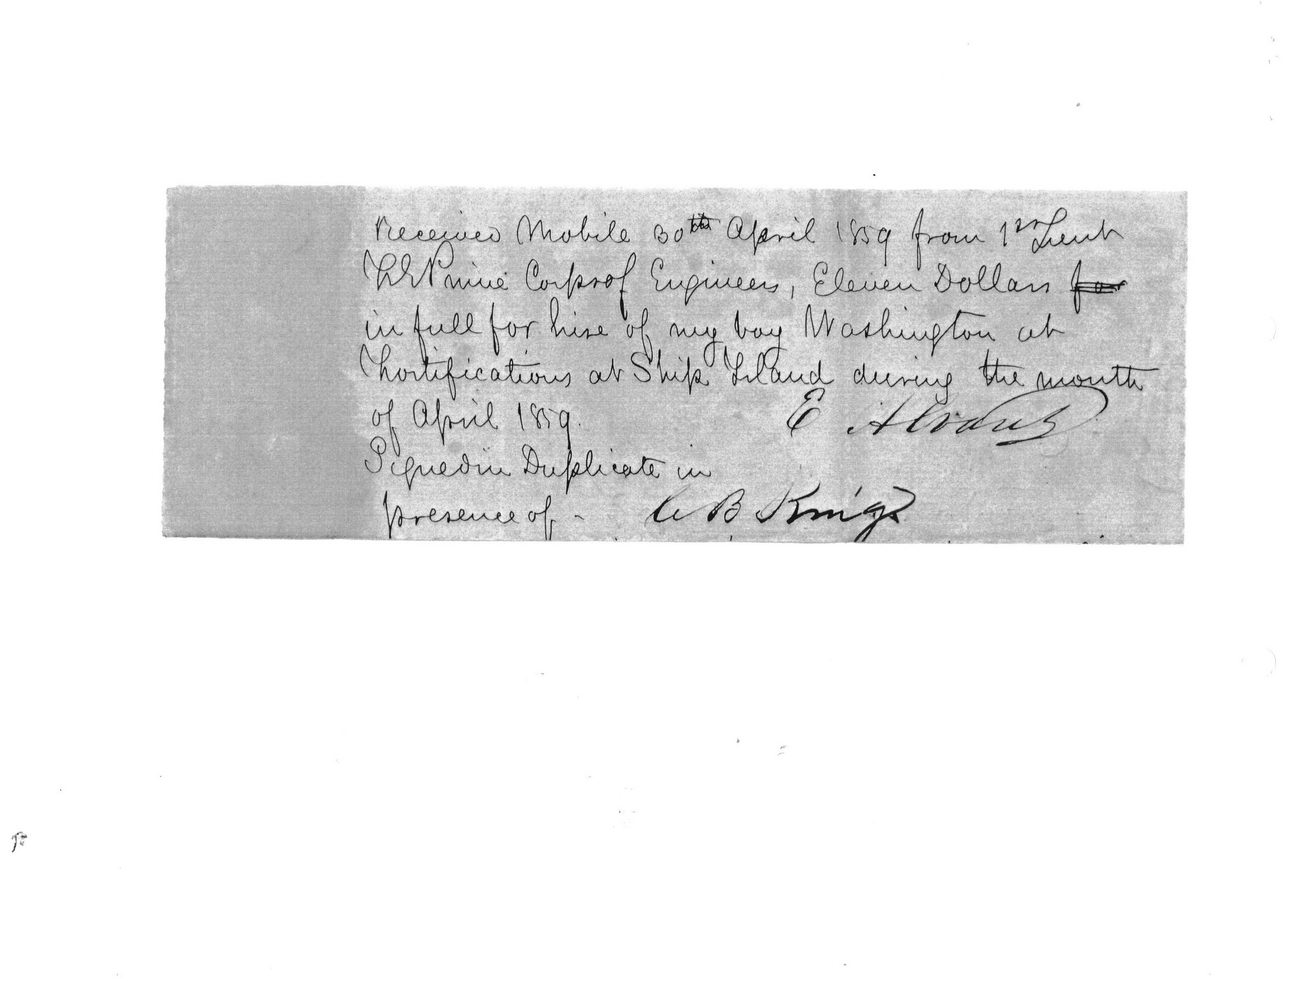 Received Mobile 30th April 1859 from 1st Lieut
F E Prime Corps of Engineers, Eleven Dollars for
in full for hire of my boy Washington at
Fortifications at Ship Island during the month
of April 1859.
E
Signed in Duplicate in
presence of - C B King